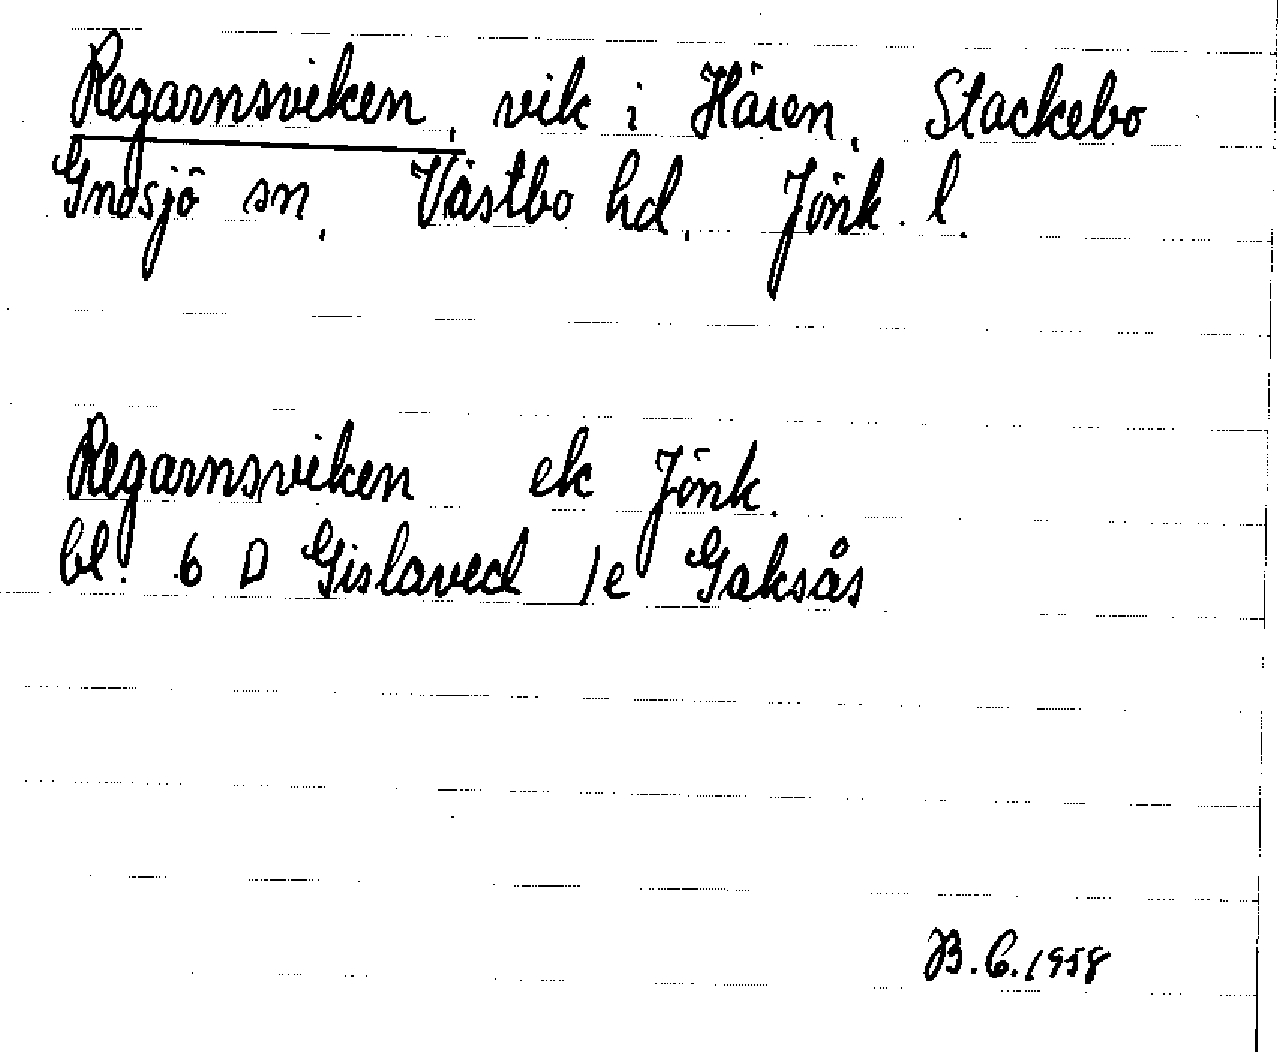 Regarnsviken, vik i Hären, Stackebo
Gnosjö sn, Västbo hd, Jönk. l.
Regarnsviken ek Jönk.
bl. 6 D Gislaved 1e Gaksås
B.C.1958